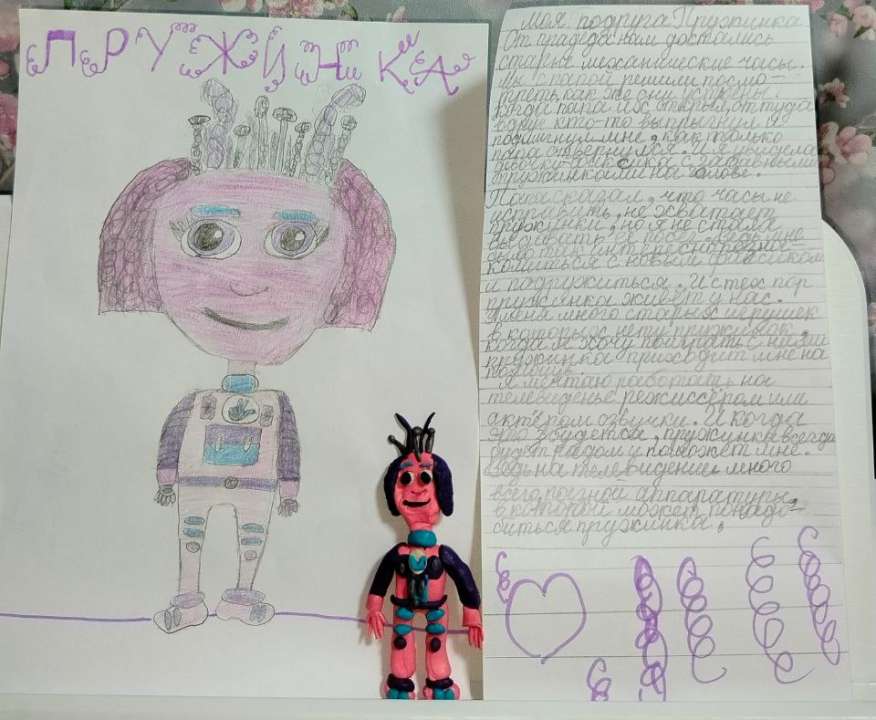 ПРУЖИНКА
Моя подруга Пружинка
От прадеда нам достались
старые механические часы.
Мы с папой решили посмо-
треть, как же они устроены.
Когда папа их открыл, оттуда
кто-то выпрыгнул и
подмигнул мне, как только
папа отвернулся. И я увидела
с забавными
пружинками на голове.
Папа сказал, что часы не
починить, не хватает
пружинки, но я не стала
мне
было
комиться с новым фиксиком
и подружиться. И с тех пор
пружинка живёт у нас.
У меня много старых игрушек
в которых нету пружинок.
Когда я хочу поиграть с ними
пружинка приходит мне на
помощь.
Я мечтаю работать на
телевиденье режиссёром или
актёром озвучки. И когда
это сбудется, пружинка всегда
будет рядом и поможет мне.
Ведь на телевидение много
всего разной аппаратуры,
в которой может понадо-
биться пружинка.